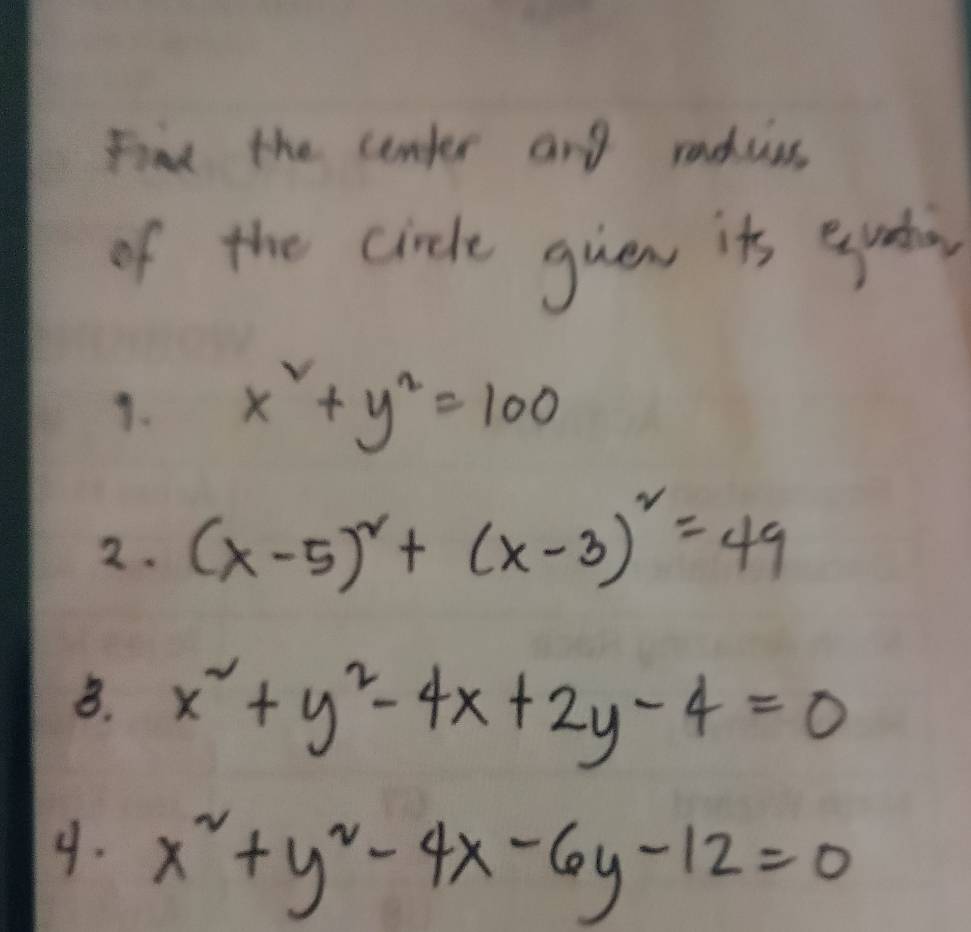 Find the center and radius
of the circle given its equation
1. x² + y² = 100
2. (x-5)² + (x-3)² = 49
3. x² + y² - 4x + 2y - 4 = 0
4. x² + y² - 4x - 6y - 12 = 0